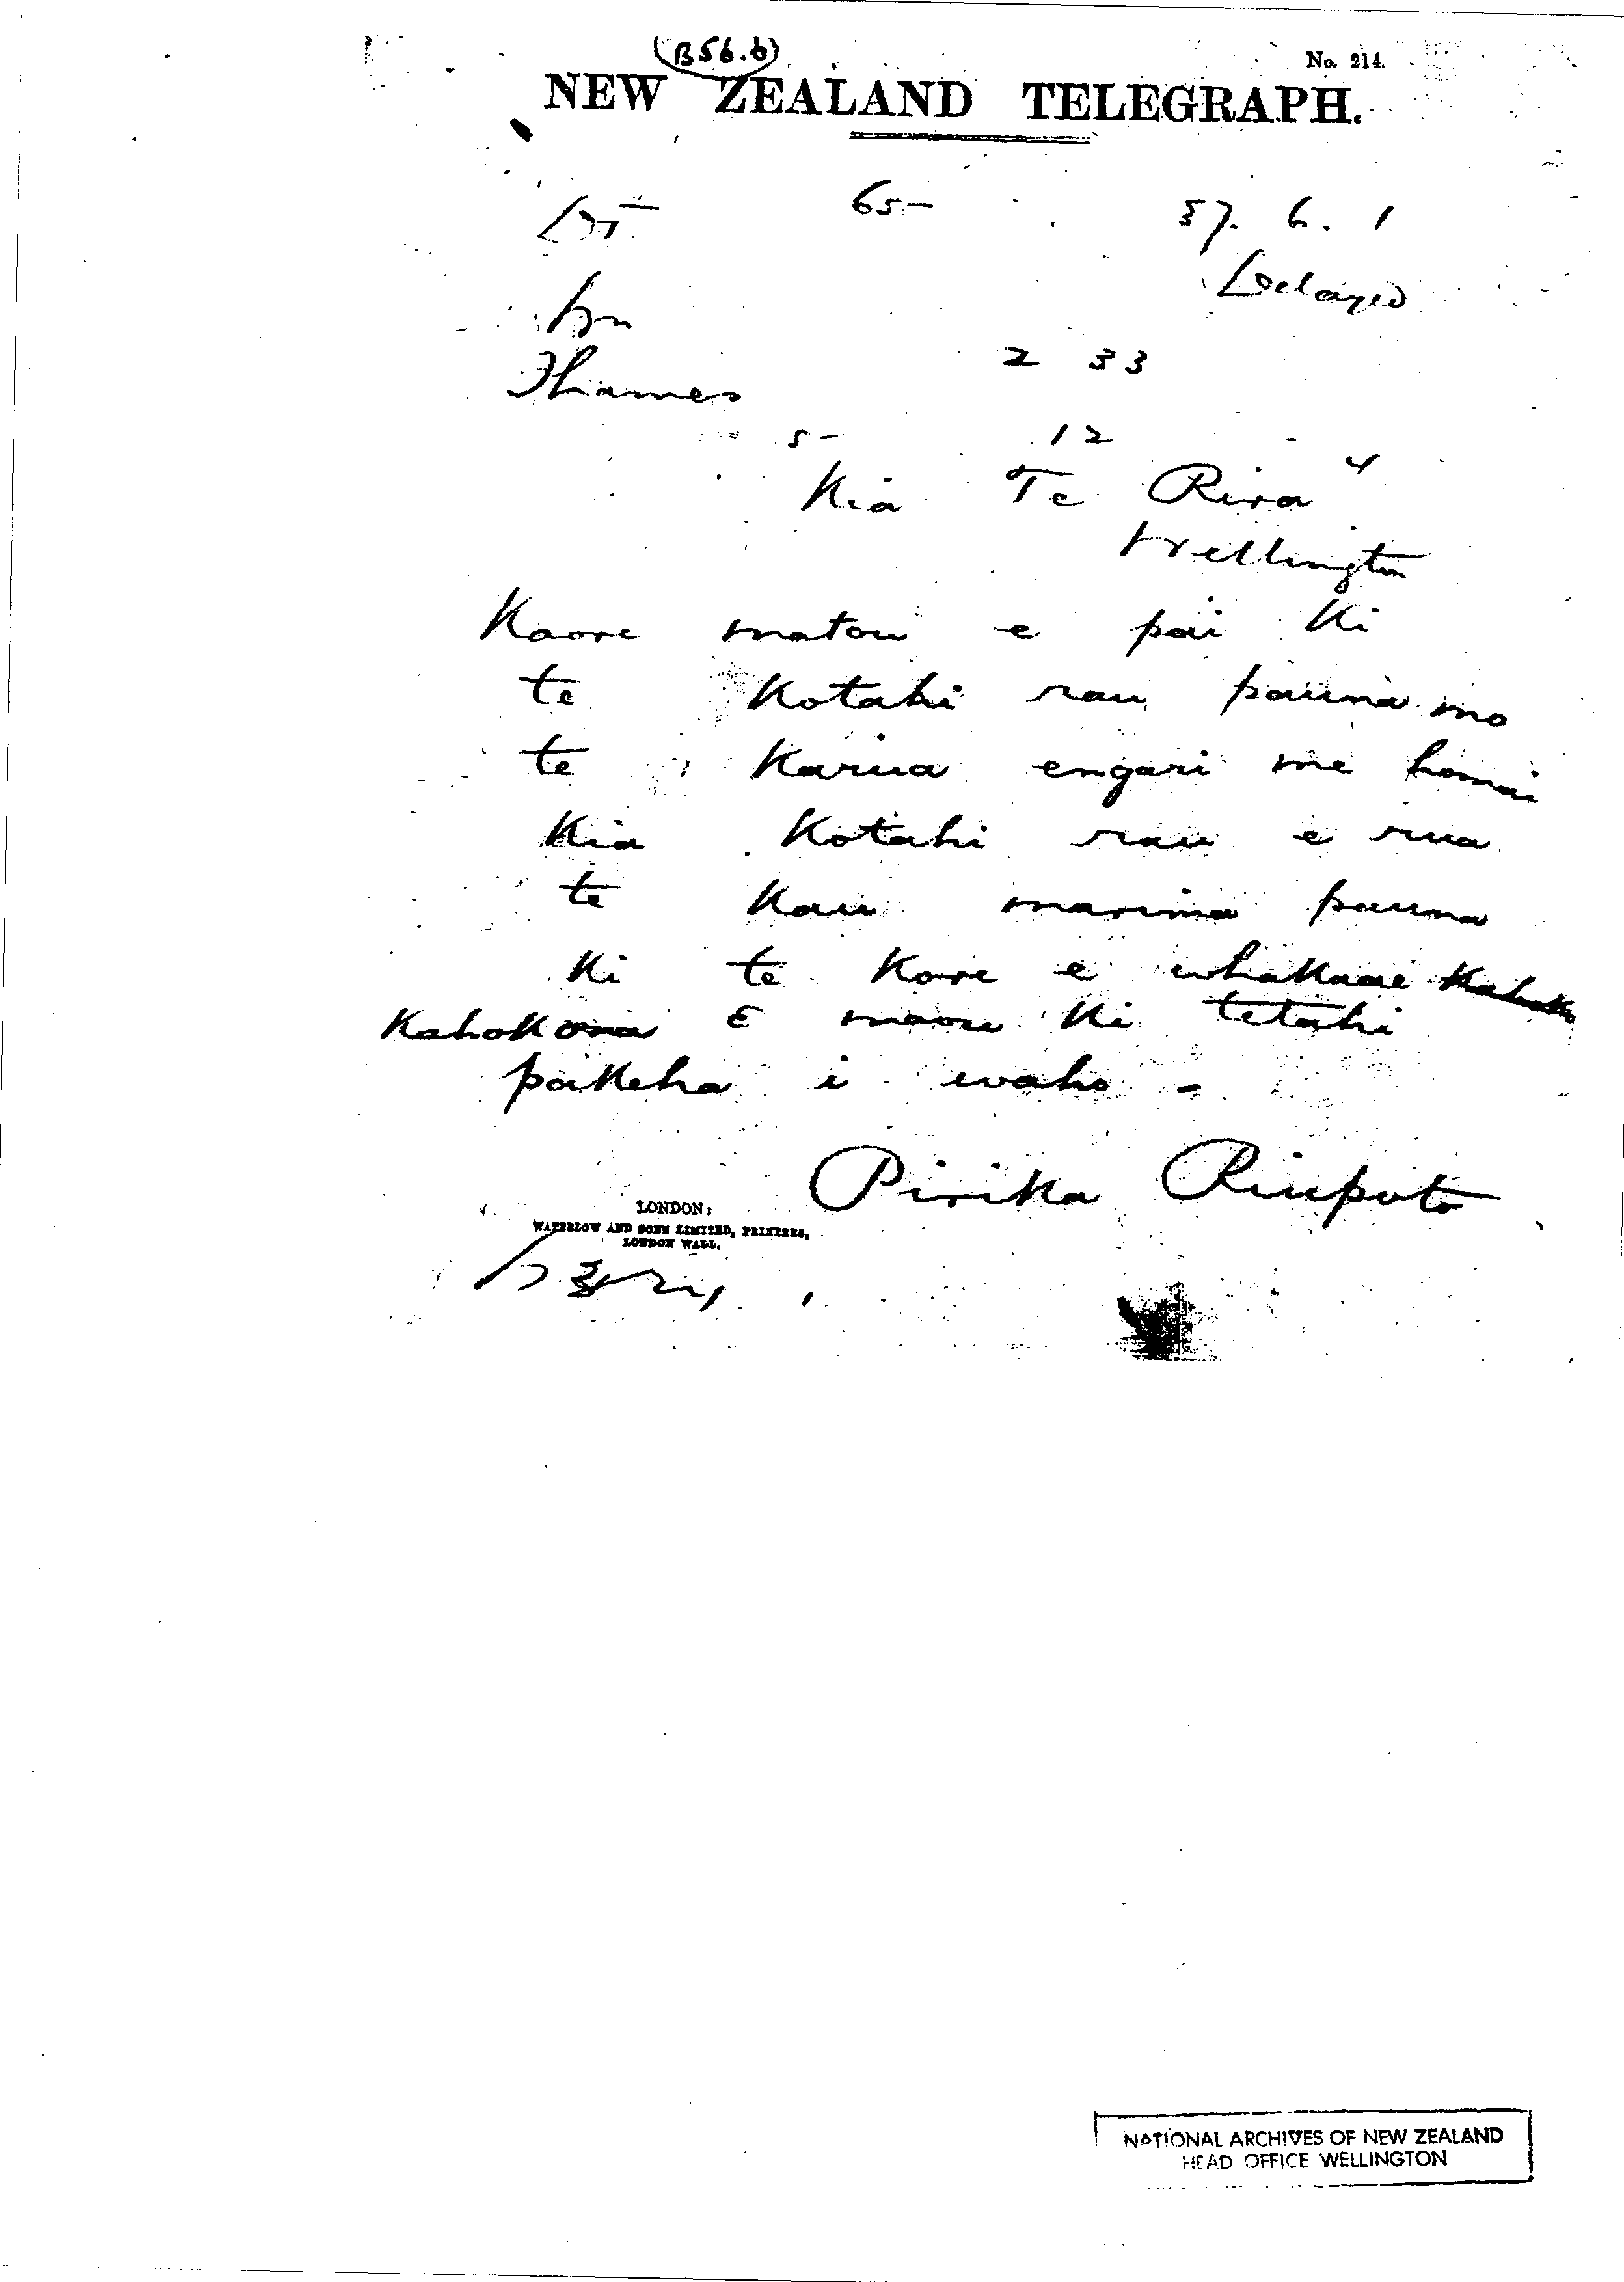 (B56.b)
No. 214.
NEW ZEALAND TELEGRAPH.
65-
57. 6. 1
Delayed
Thames
2 33
5- 12
4
Kia Te Rira
Wellington
Kaore matou e pai ki
te Kotahi rau pauna mo
te Karua engari me homai
Kia Kotahi rau e rua
te Kau marima pauna
Ki te Kore e whakaae
Kahokona E maou Ki tetahi
pakeha i waho -
Pirika Riupoto
LONDON:
WATERLOW AND SONS LIMITED, PRINTERS,
LONDON WALL.
NATIONAL ARCHIVES OF NEW ZEALAND
HEAD OFFICE WELLINGTON